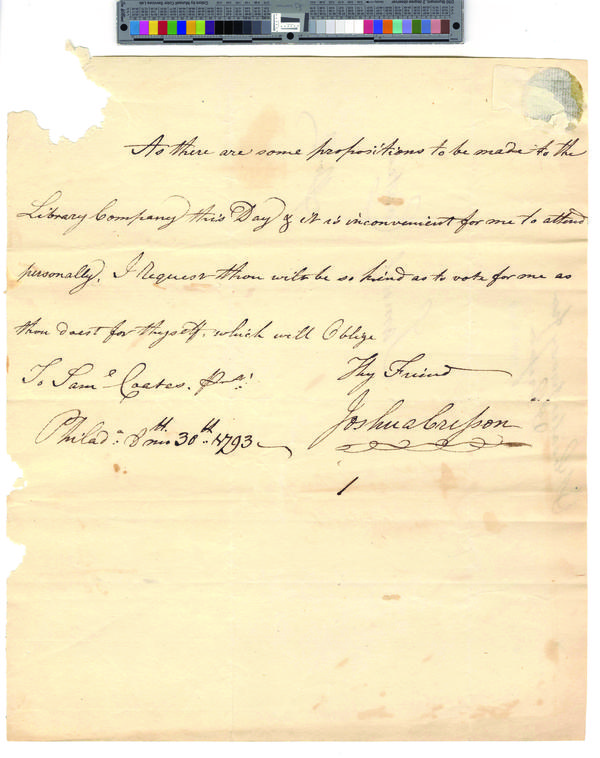 As there are some propositions to be made to the
Library Company this Day & it is inconvenient for me to attend
personally, I Request thou wilt be so kind as to vote for me as
thou doest for thyself, which will Oblige
To Saml Coates.
Thy Friend
Joshua Cresson
Philada. 8th mo 30th 1793